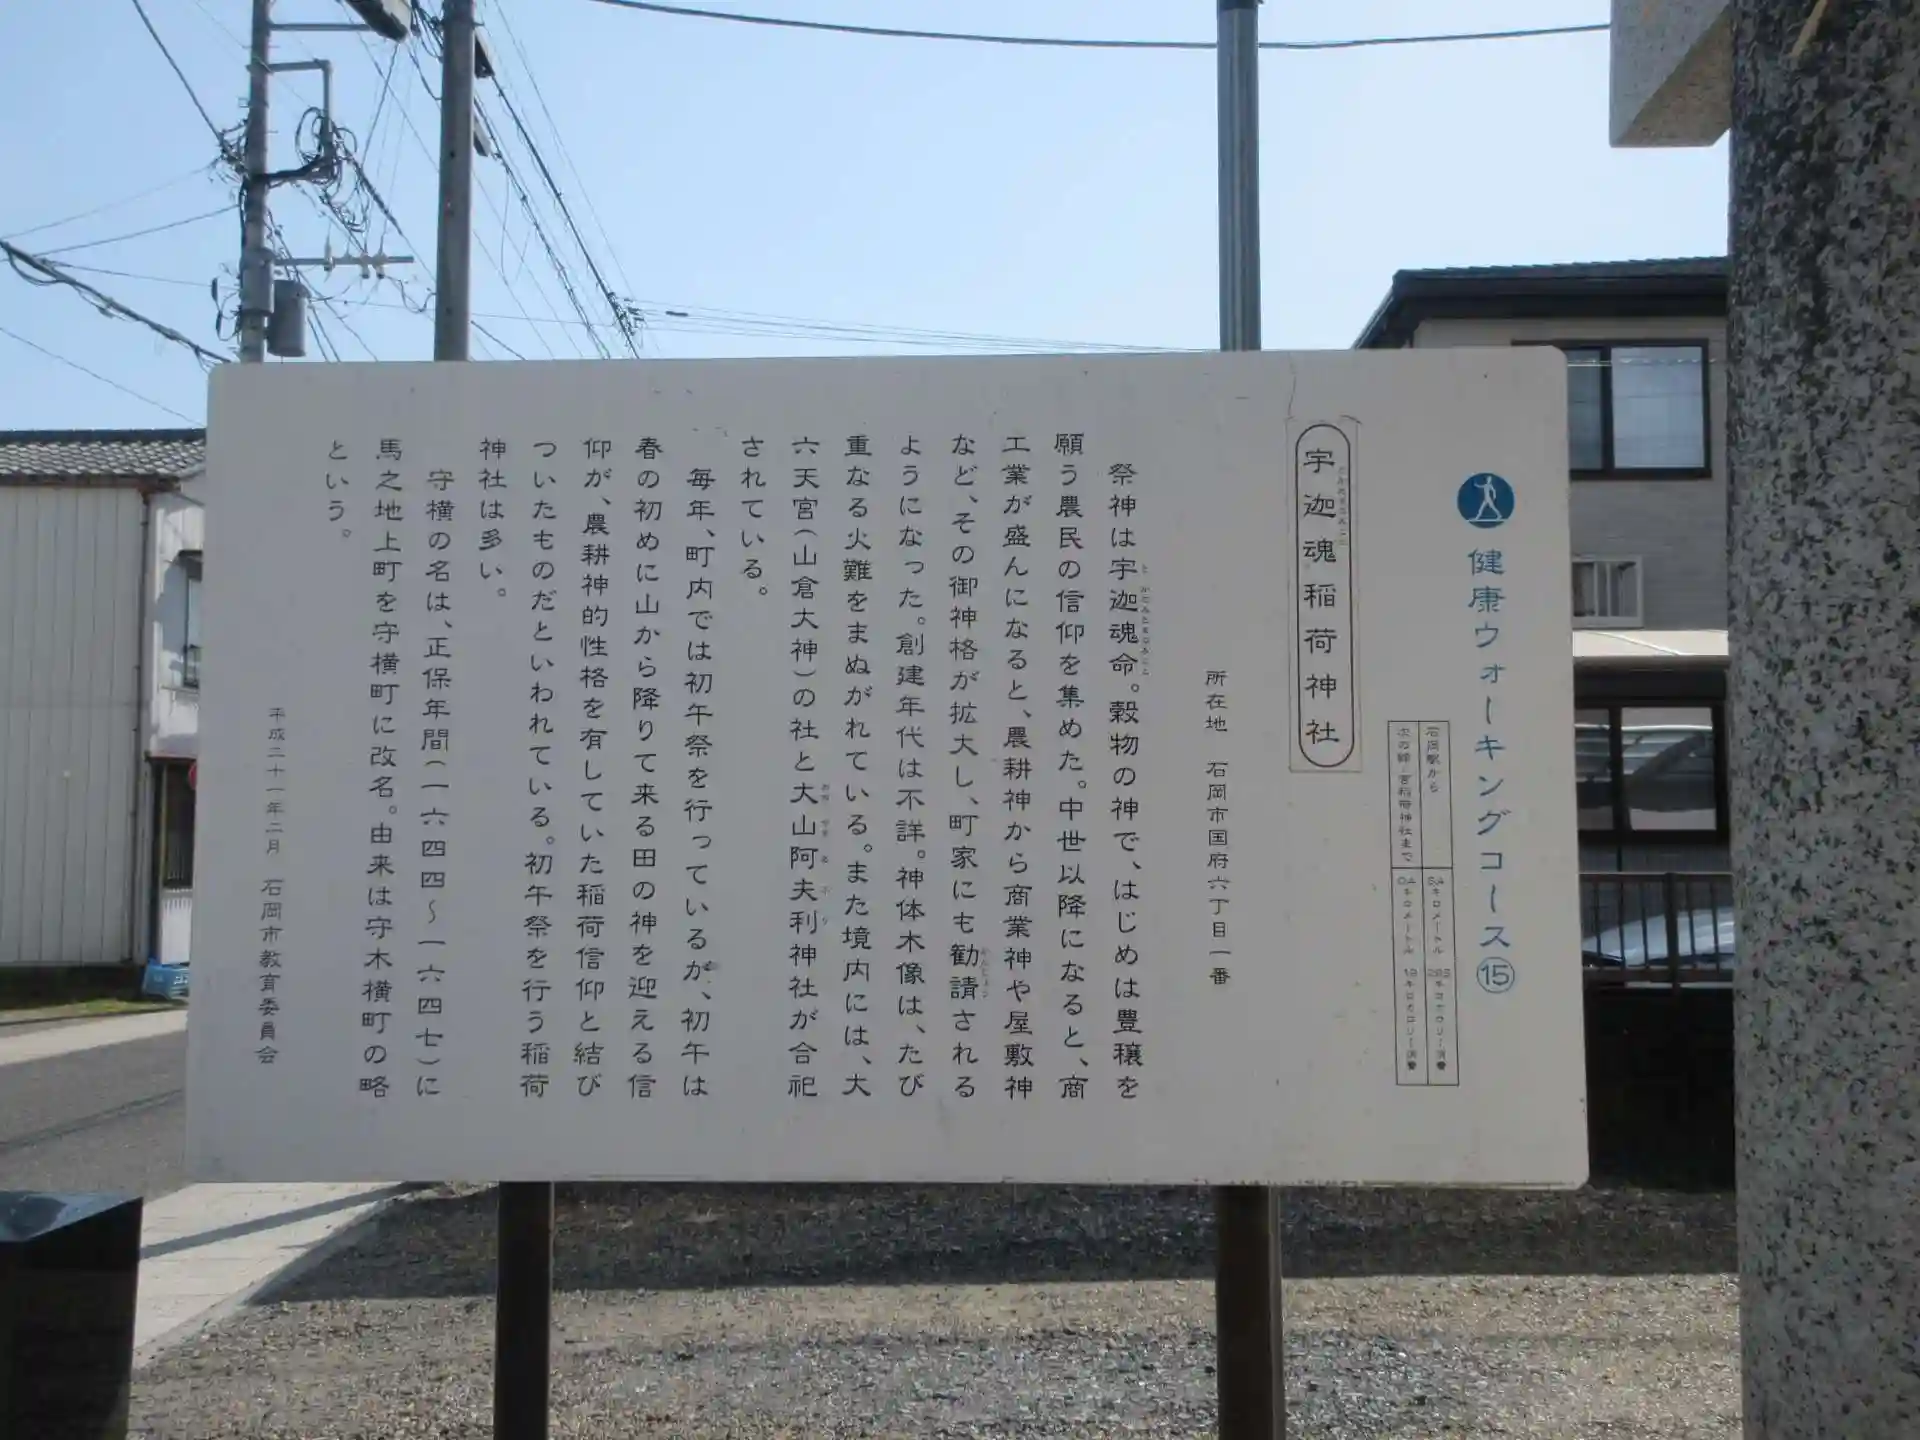 健康ウォーキングコース⑮
石岡駅から
次の鈴之宮稲荷神社まで
宇迦魂稲荷神社
所在地 石岡市国府六丁目一番
祭神は宇迦魂命。穀物の神で、はじめは豊穣を
願う農民の信仰を集めた。中世以降になると、商
工業が盛んになると、農耕神から商業神や屋敷神
など、その御神格が拡大し、町家にも勧請される
ようになった。創建年代は不詳。神体木像は、たび
重なる火難をまぬがれている。また境内には、大
六天宮(山倉大神)の社と大山阿夫利神社が合祀
されている。
毎年、町内では初午祭を行っているが、初午は
春の初めに山から降りて来る田の神を迎える信
仰が、農耕神的性格を有していた稲荷信仰と結び
ついたものだといわれている。初午祭を行う稲荷
神社は多い。
守横の名は、正保年間(一六四四〜一六四七)に
馬之地上町を守横町に改名。由来は守木横町の略
という。
平成二十一年二月 石岡市教育委員会